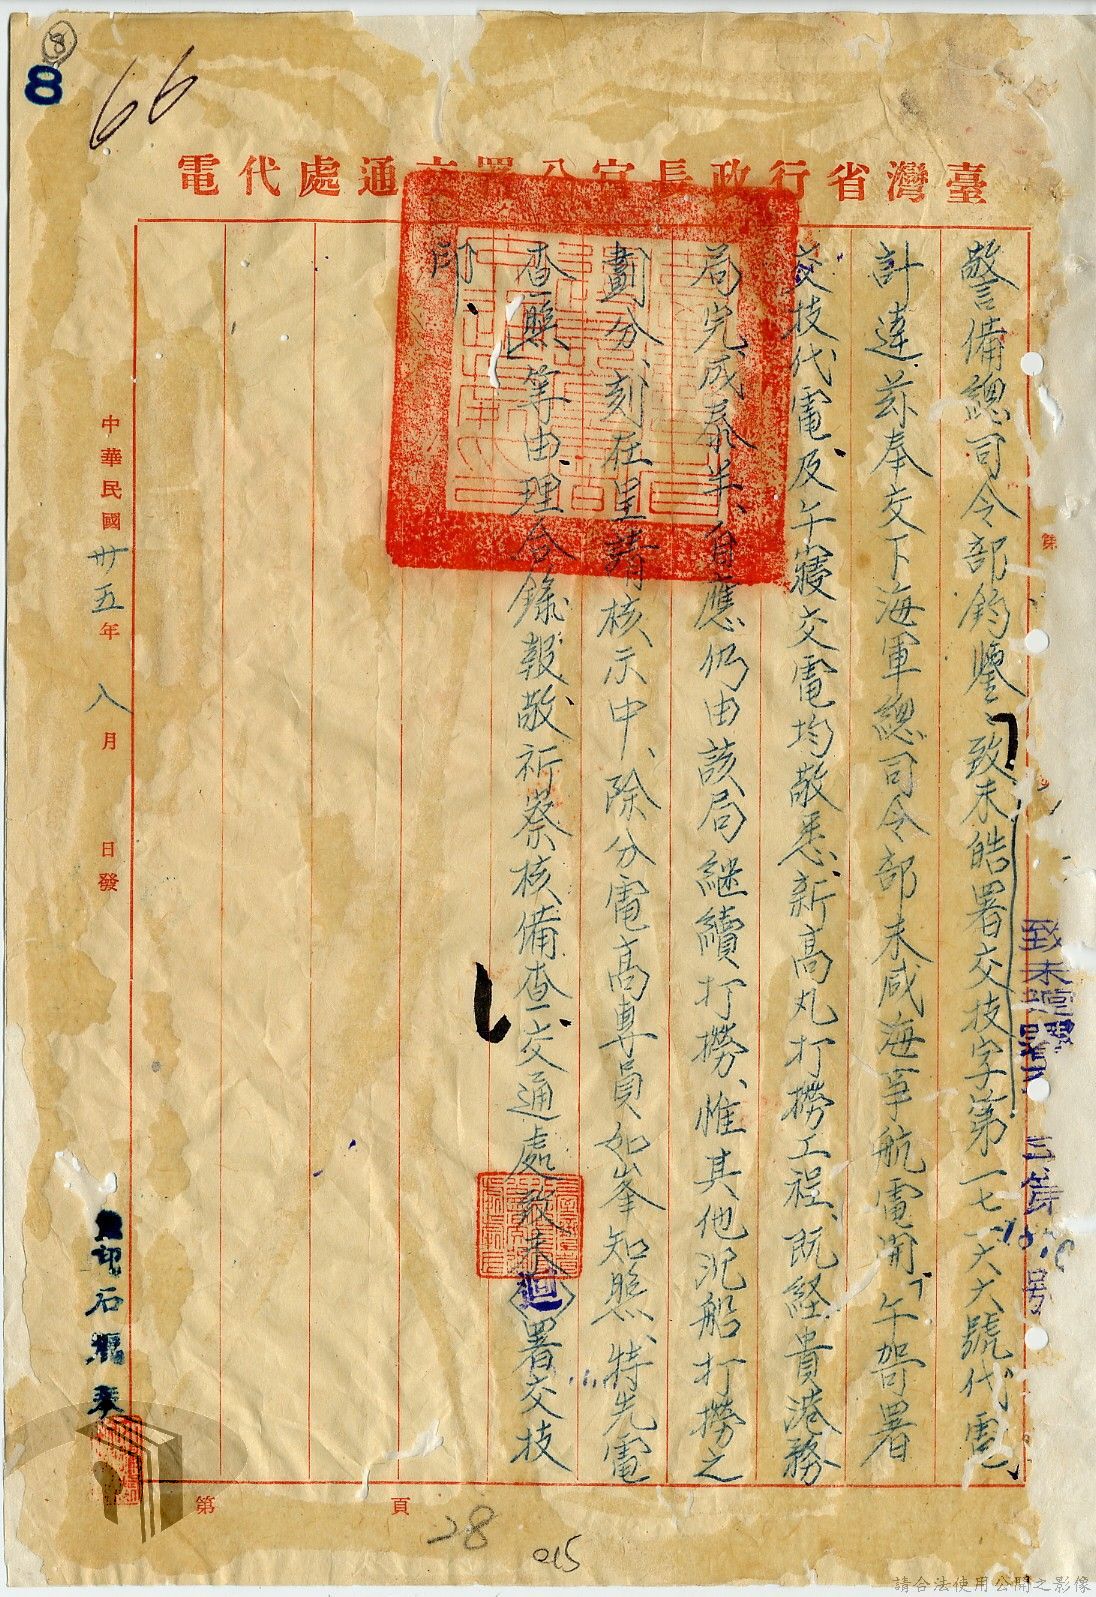 8
8
66
臺灣省行政長官公署交通處代電
警備總司令部鈞鑒、致未皓署交技字第一七一六六號代電
計達茲奉交下海軍總司令部未咸海爭航電開「午哿署
交技代電、及午寢交電均敬悉、新高丸打撈工程、既経貴港務
局完成泰半、自應仍由該局継續打撈、惟其他沉船打撈之
劃分、刻在呈請核示中、除分電高專員如峯知照、特先電
查照」等由、理合錄報敬祈察核備查、交通處敬未迴署交技
印
致未迴署
號
中華民國卅五年八月 日發
印石
第 頁
28
015
請合法使用公開之影像